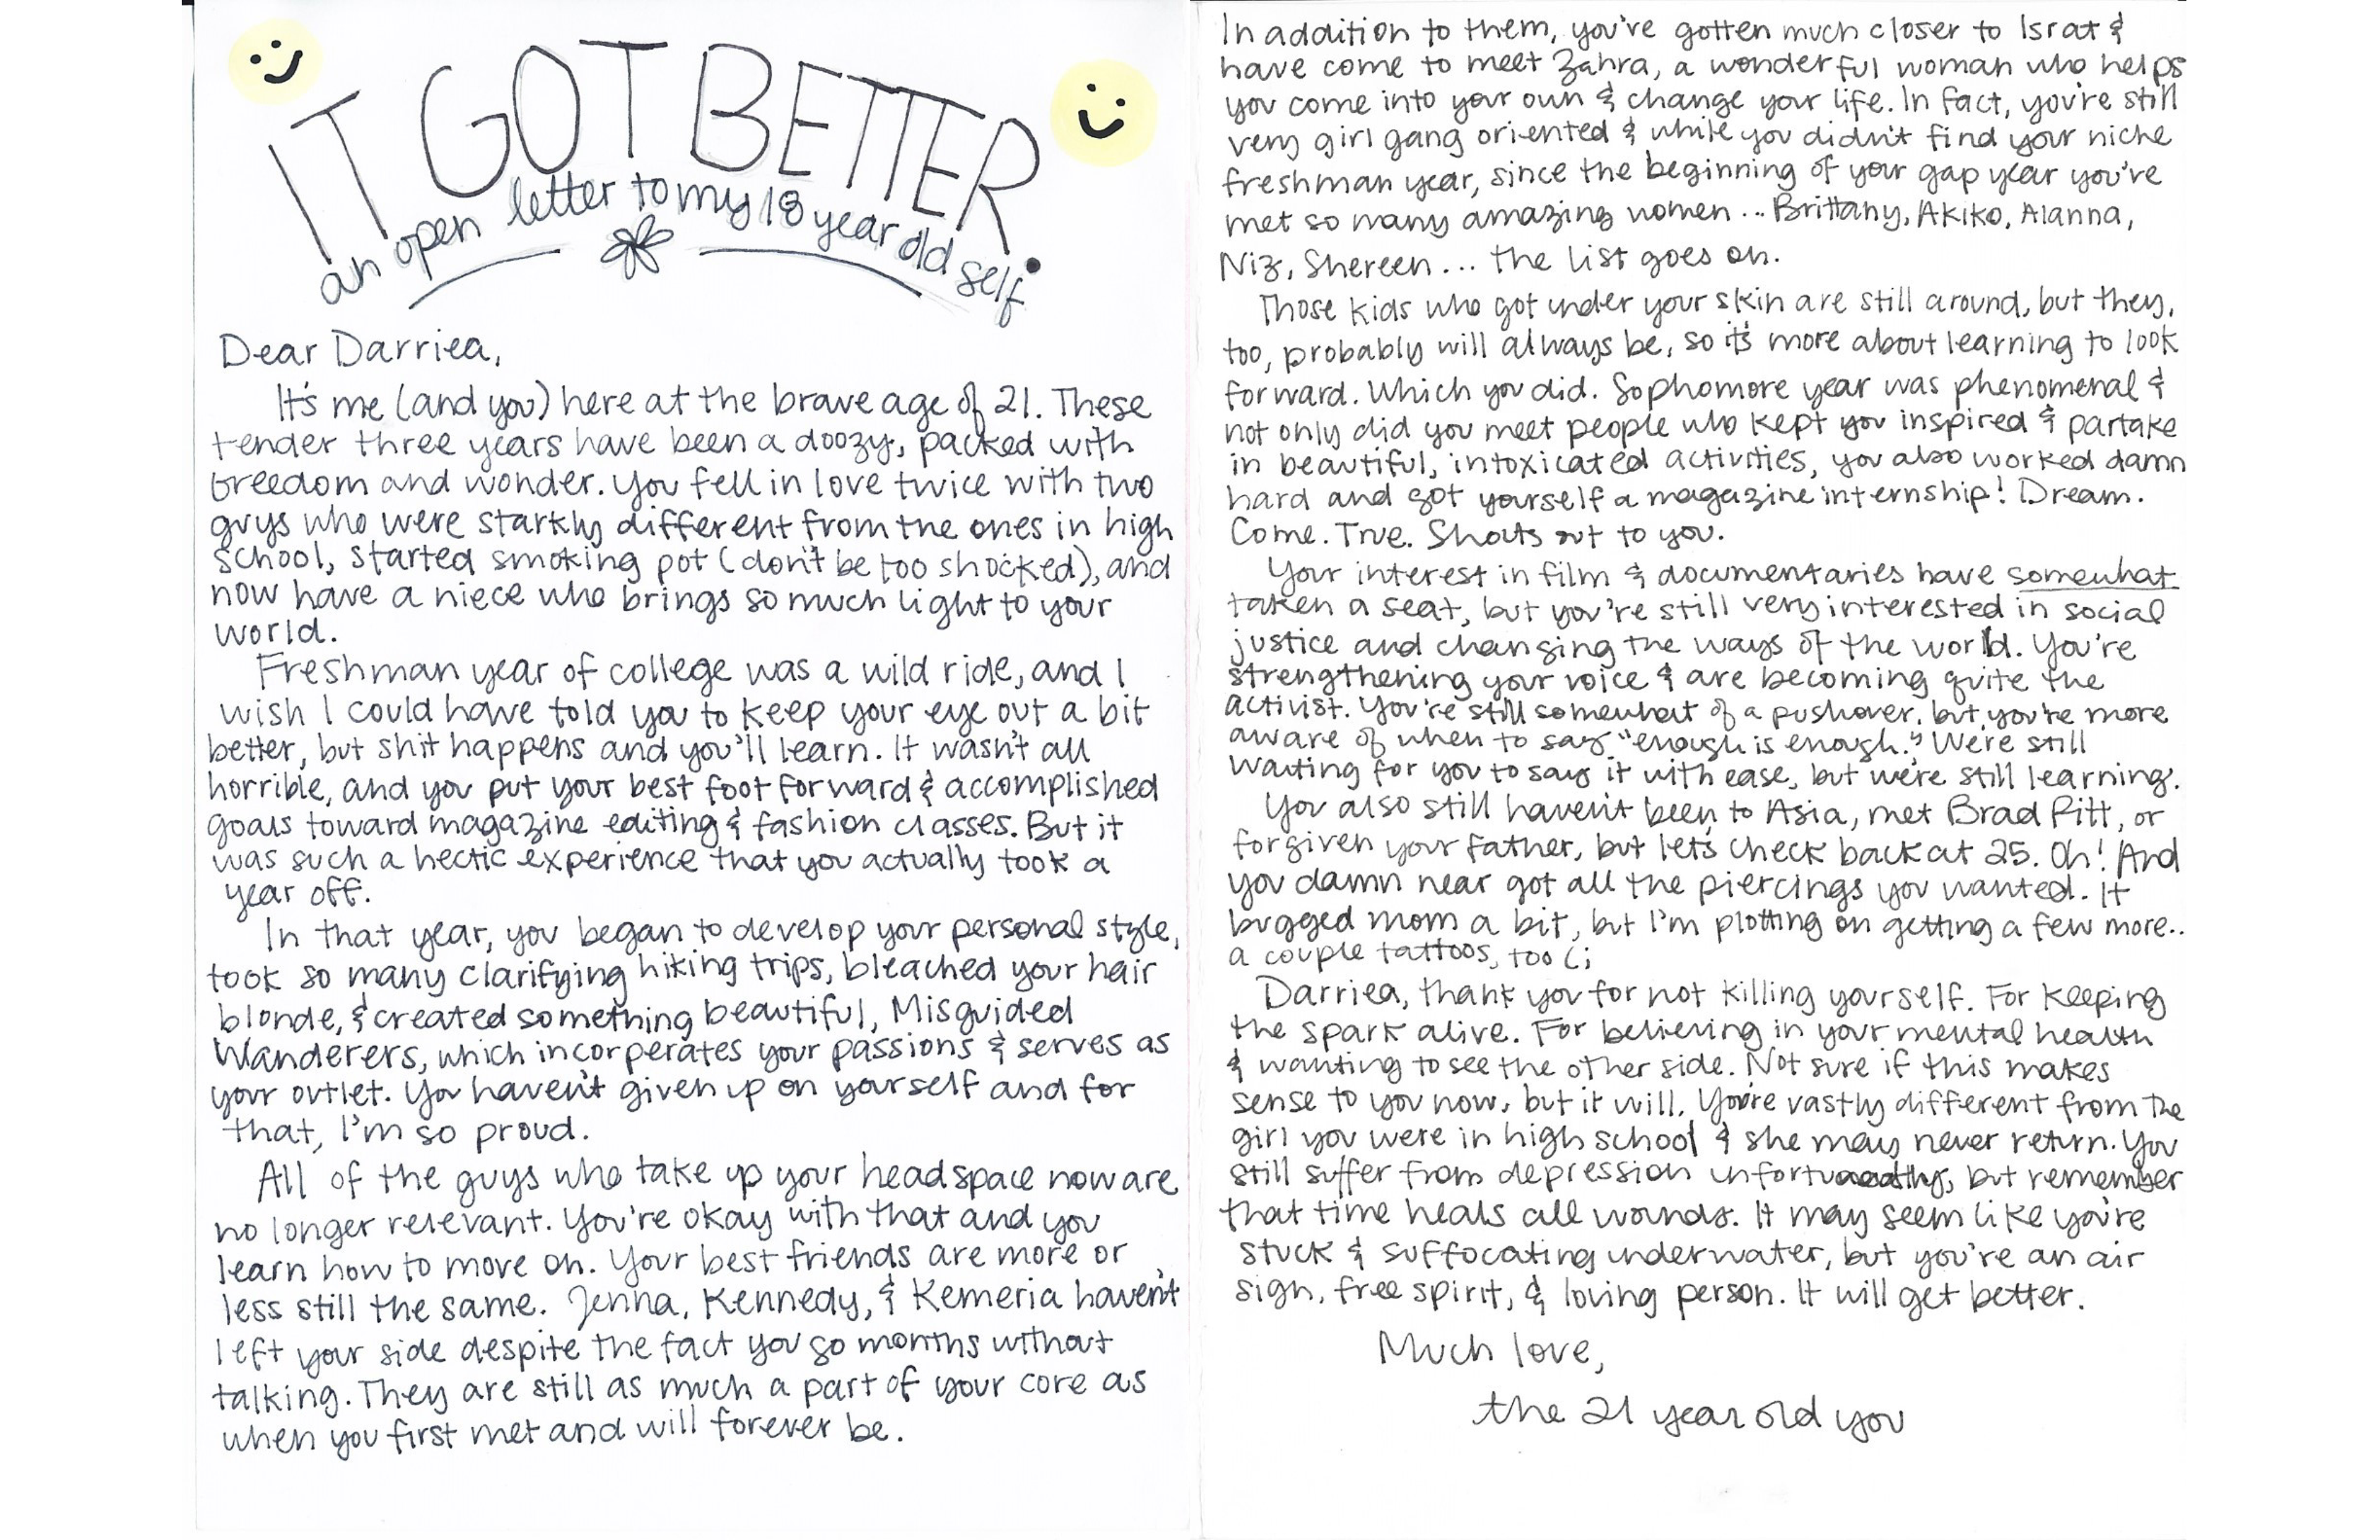 IT GOT BETTER.
an open letter to my 18 year old self
Dear Darriea,
It's me (and you) here at the brave age of 21. These
tender three years have been a doozy, packed with
freedom and wonder. You fell in love twice with two
guys who were starkly different from the ones in high
school, started smoking pot (don't be too shocked), and
now have a niece who brings so much light to your
world.
Freshman year of college was a wild ride, and I
wish I could have told you to keep your eye out a bit
better, but shit happens and you'll learn. It wasn't all
horrible, and you put your best foot forward & accomplished
goals toward magazine editing & fashion classes. But it
was such a hectic experience that you actually took a
year off.
In that year, you began to develop your personal style,
took so many clarifying hiking trips, bleached your hair
blonde, & created something beautiful, Misguided
Wanderers, which incorperates your passions & serves as
your outlet. You haven't given up on yourself and for
that, I'm so proud.
All of the guys who take up your headspace now are
no longer relevant. You're okay with that and you
learn how to move on. Your best friends are more or
less still the same. Jenna, Kennedy, & Kemeria haven't
left your side despite the fact you go months without
talking. They are still as much a part of your core as
when you first met and will forever be.
In addition to them, you've gotten much closer to Israt &
have come to meet Zahra, a wonderful woman who helps
you come into your own & change your life. In fact, you're still
very girl gang oriented & while you didn't find your niche
freshman year, since the beginning of your gap year you've
met so many amazing women... Brittany, Akiko, Alanna,
Niz, Shereen... the list goes on.
Those kids who got under your skin are still around, but they,
too, probably will always be, so it's more about learning to look
forward. Which you did. Sophomore year was phenomenal &
not only did you meet people who kept you inspired & partake
in beautiful, intoxicated activities, you also worked damn
hard and got yourself a magazine internship! Dream.
Come. True. Shouts out to you.
Your interest in film & documentaries have somewhat
taken a seat, but you're still very interested in social
justice and changing the ways of the world. You're
strengthening your voice & are becoming quite the
activist. You're still somewhat of a pushover, but you're more
aware of when to say "enough is enough." We're still
waiting for you to say it with ease, but we're still learning.
You also still haven't been to Asia, met Brad Pitt, or
forgiven your father, but let's check back at 25. Oh! And
you damn near got all the piercings you wanted. It
bugged mom a bit, but I'm plotting on getting a few more..
a couple tattoos, too (;
Darriea, thank you for not killing yourself. For keeping
the spark alive. For believing in your mental health
& wanting to see the other side. Not sure if this makes
sense to you now, but it will. You're vastly different from the
girl you were in high school & she may never return. You
still suffer from depression unfortunately, but remember
that time heals all wounds. It may seem like you're
stuck & suffocating underwater, but you're an air
sign, free spirit, & loving person. It will get better.
Much love,
the 21 year old you